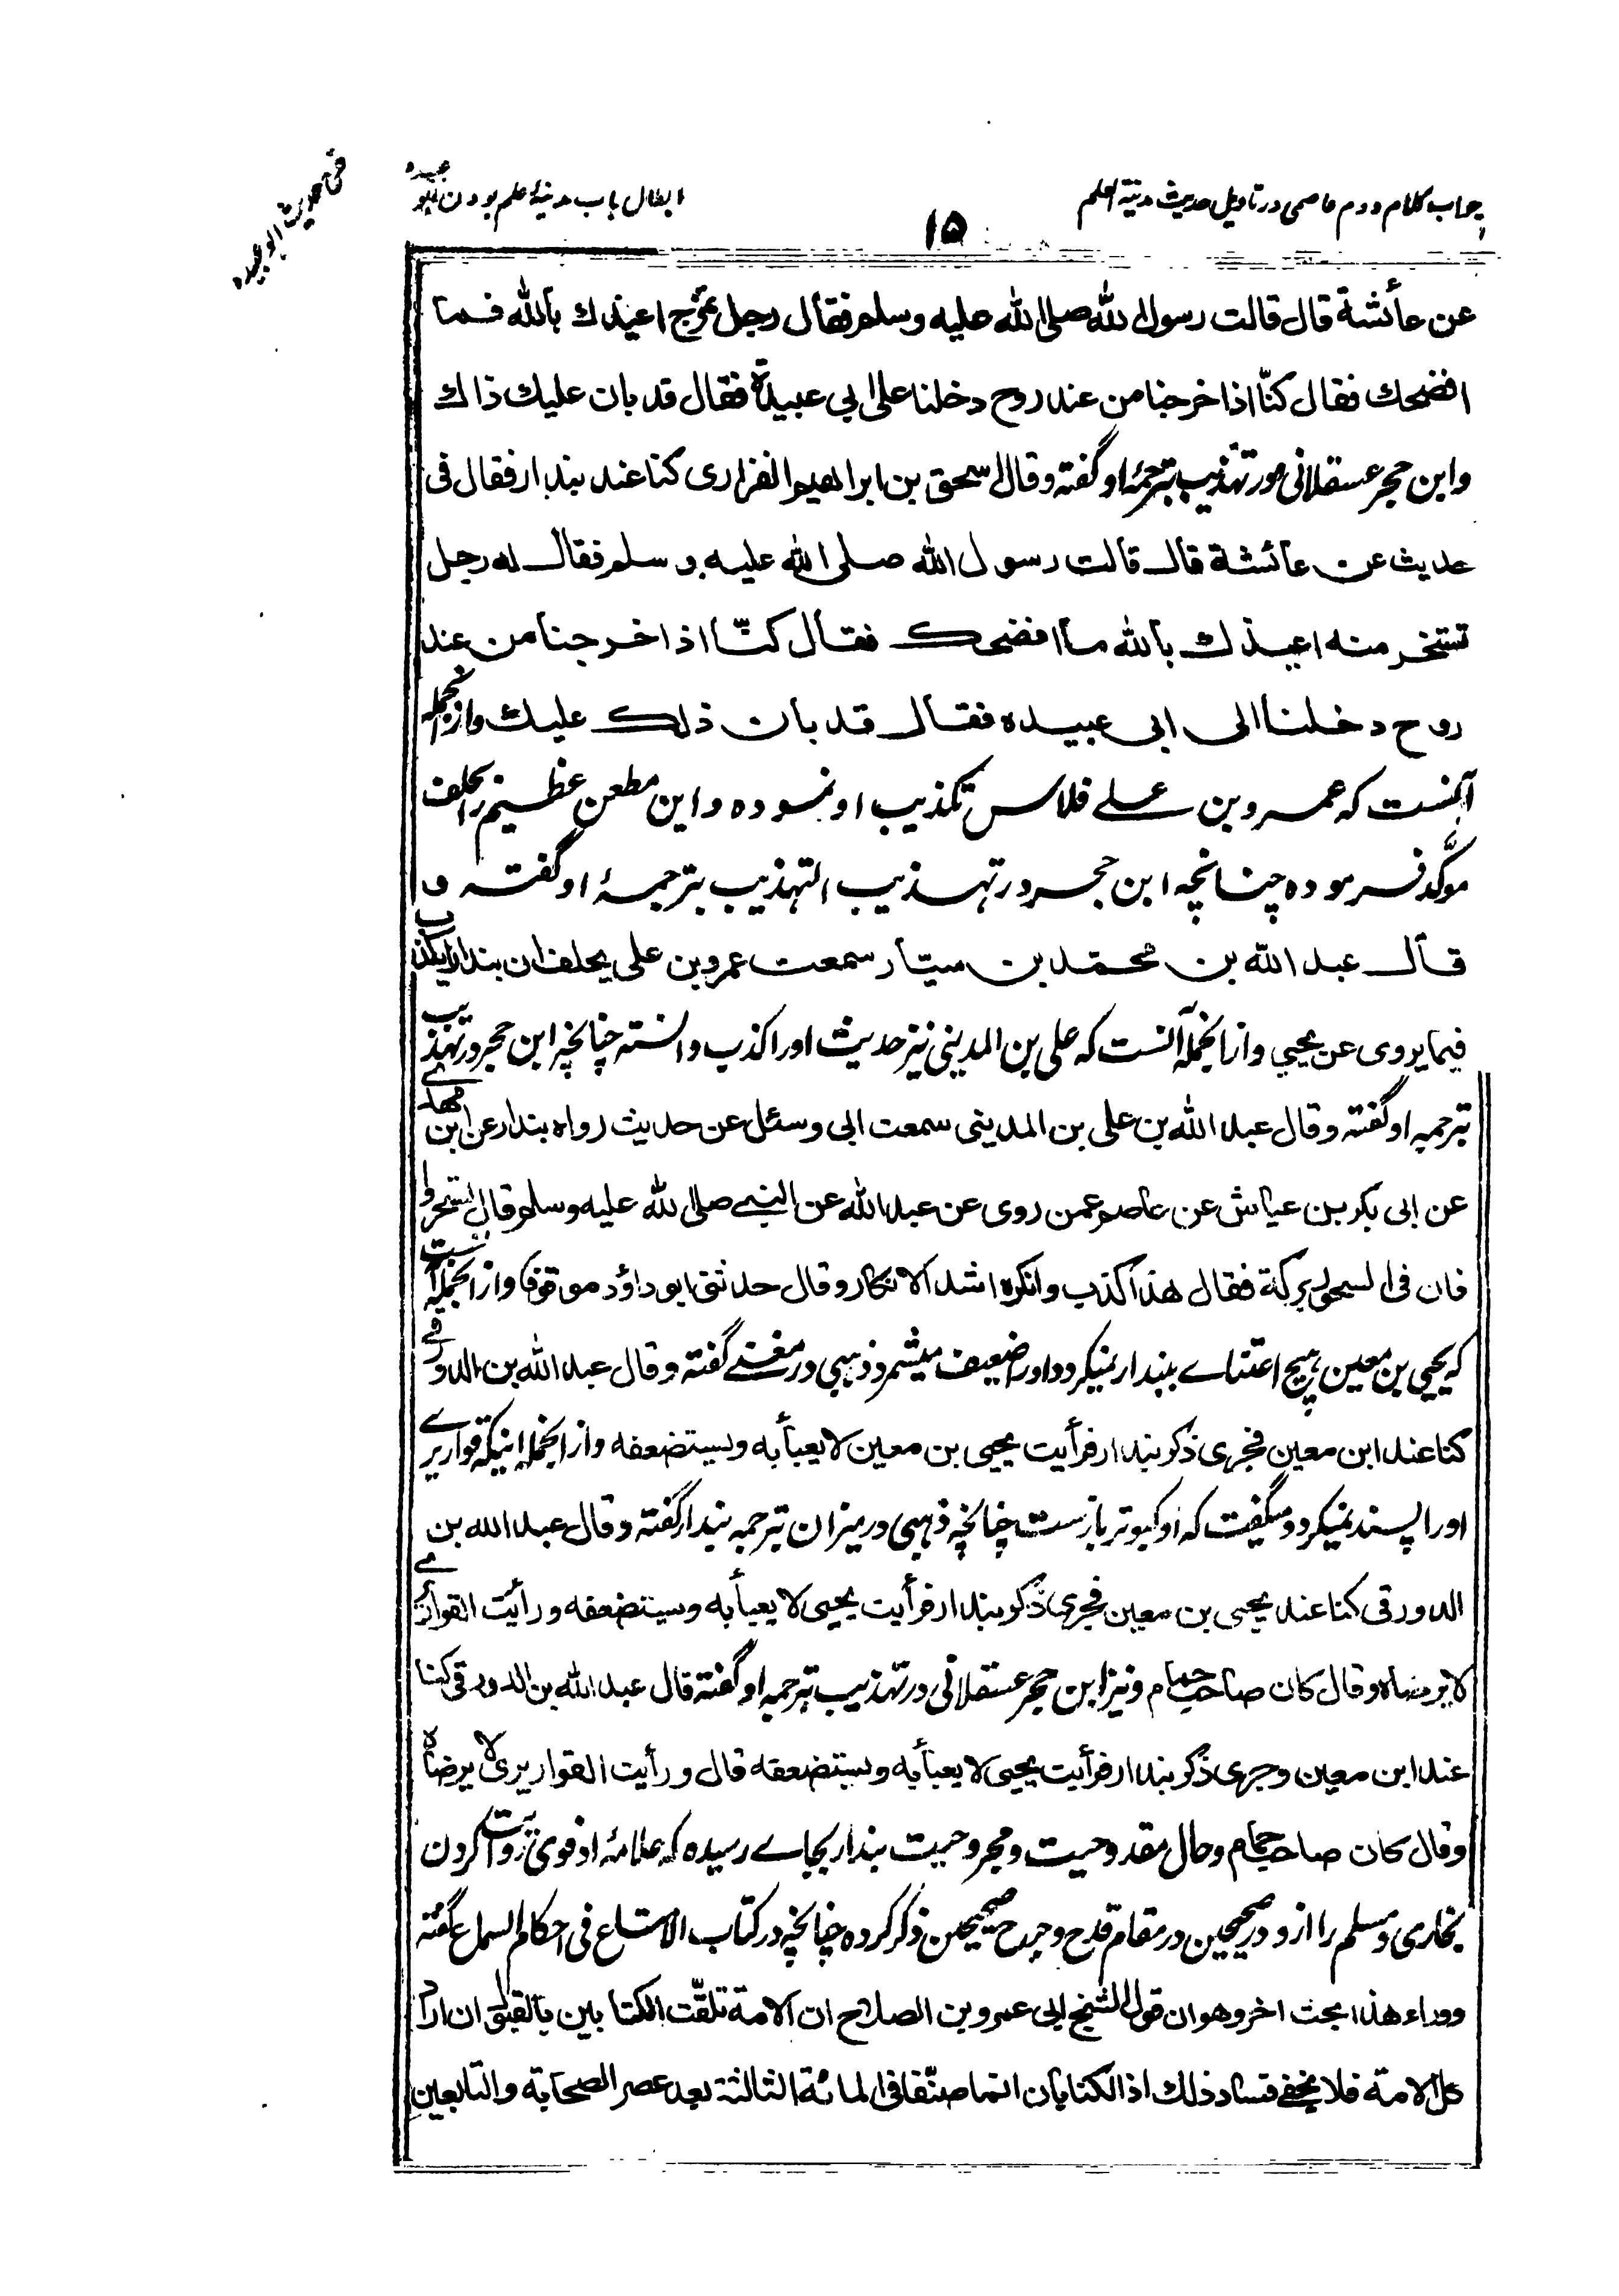 جواب كلام دوم عاصمی در تاویل حدیث مدینة العلم
۱۵
ابطال باب مدینۀ علم بودن ابو عبیده
فی حدیث ابو عبیده
عن عائشة قال قالت رسول الله صلی الله علیه وسلم فقال رجل یمزح اعیذك بالله فما
افضحك فقال كنّا اذا خرجنا من عند روح دخلنا علی ابی عبیدة فقال قد بان علیك ذاك
وابن حجر عسقلانی در تهذیب بترجمۀ او گفته وقال اسحق بن ابراهیم الفزاری كنا عند بندار فقال فی
حدیث عن عائشة قال قالت رسول الله صلی الله علیه وسلم فقال له رجل
تسخر منه اعیذك بالله ما افضحك فقال كنّا اذا خرجنا من عند
روح دخلنا الی ابی عبیده فقال قد بان ذلك علیك واز انجمله
آنست كه عمرو بن علی فلاس تكذیب او نموده و این مطعن عظیم را بحلف
موكّد فرموده چنانچه ابن حجر در تهذیب التهذیب بترجمۀ او گفته و
قال عبد الله بن محمّد بن سیّار سمعت عمرو بن علی یحلف ان بندارا یكذب
فیما یروی عن یحیی واز انجمله آنست كه علی بن المدینی نیز حدیث اورا كذب دانسته چنانچه ابن حجر در تهذیب
بترجمه او گفته وقال عبد الله بن علی بن المدینی سمعت ابی وسئل عن حدیث رواه بندار عن ابن مهدی
عن ابی بكر بن عیاش عن عاصم عمن روی عن عبد الله عن النبی صلی الله علیه وسلم قال تسحروا
فان فی السحور بركة فقال هذا كذب وانكره اشد الانكار وقال حدثنی ابو داؤد موقوفا واز انجمله آنست
كه یحیی بن معین هیچ اعتنای ببندار نمیكرد و اورا ضعیف میشمرد ذهبی در مغنی گفته وقال عبد الله بن الدورقی
كنا عند ابن معین فجری ذكر بندار فرأیت یحیی بن معین لا یعبأ به ویستضعفه واز انجمله اینكه قواریری
اورا پسند نمیكرد و میگفت كه او كبوتر بازست چنانچه ذهبی در میزان بترجمه بندار گفته وقال عبد الله بن
الدورقی كنا عند یحیی بن معین فجری ذكر بندار فرأیت یحیی لا یعبأ به ویستضعفه ورأیت القواریری
لا یرضاه وقال كان صاحب حمام ونیز ابن حجر عسقلانی در تهذیب بترجمه او گفته قال عبد الله بن الدورقی كنا
عند ابن معین وجری ذكر بندار فرأیت یحیی لا یعبأ به ویستضعفه قال ورأیت القواریری لا یرضاه
وقال كان صاحب حمام و حال مقدوحیت و مجروحیت بندار بجای رسیده كه علامۀ ادفوی روایت كردن
بخاری و مسلم را ازو در صحیحین در مقام قدح و جرح صحیحین ذكر كرده چنانچه در كتاب الامتاع فی احكام السماع گفته
ووراء هذا بحث اخر وهو ان قول الشیخ ابی عمرو بن الصلاح ان الامة تلقّت الكتابین بالقبول ان اراد
كل الامة فلا یخفی فساد ذلك اذ الكتابان انما صنّفا فی المائة الثالثة بعد عصر الصحابة والتابعین